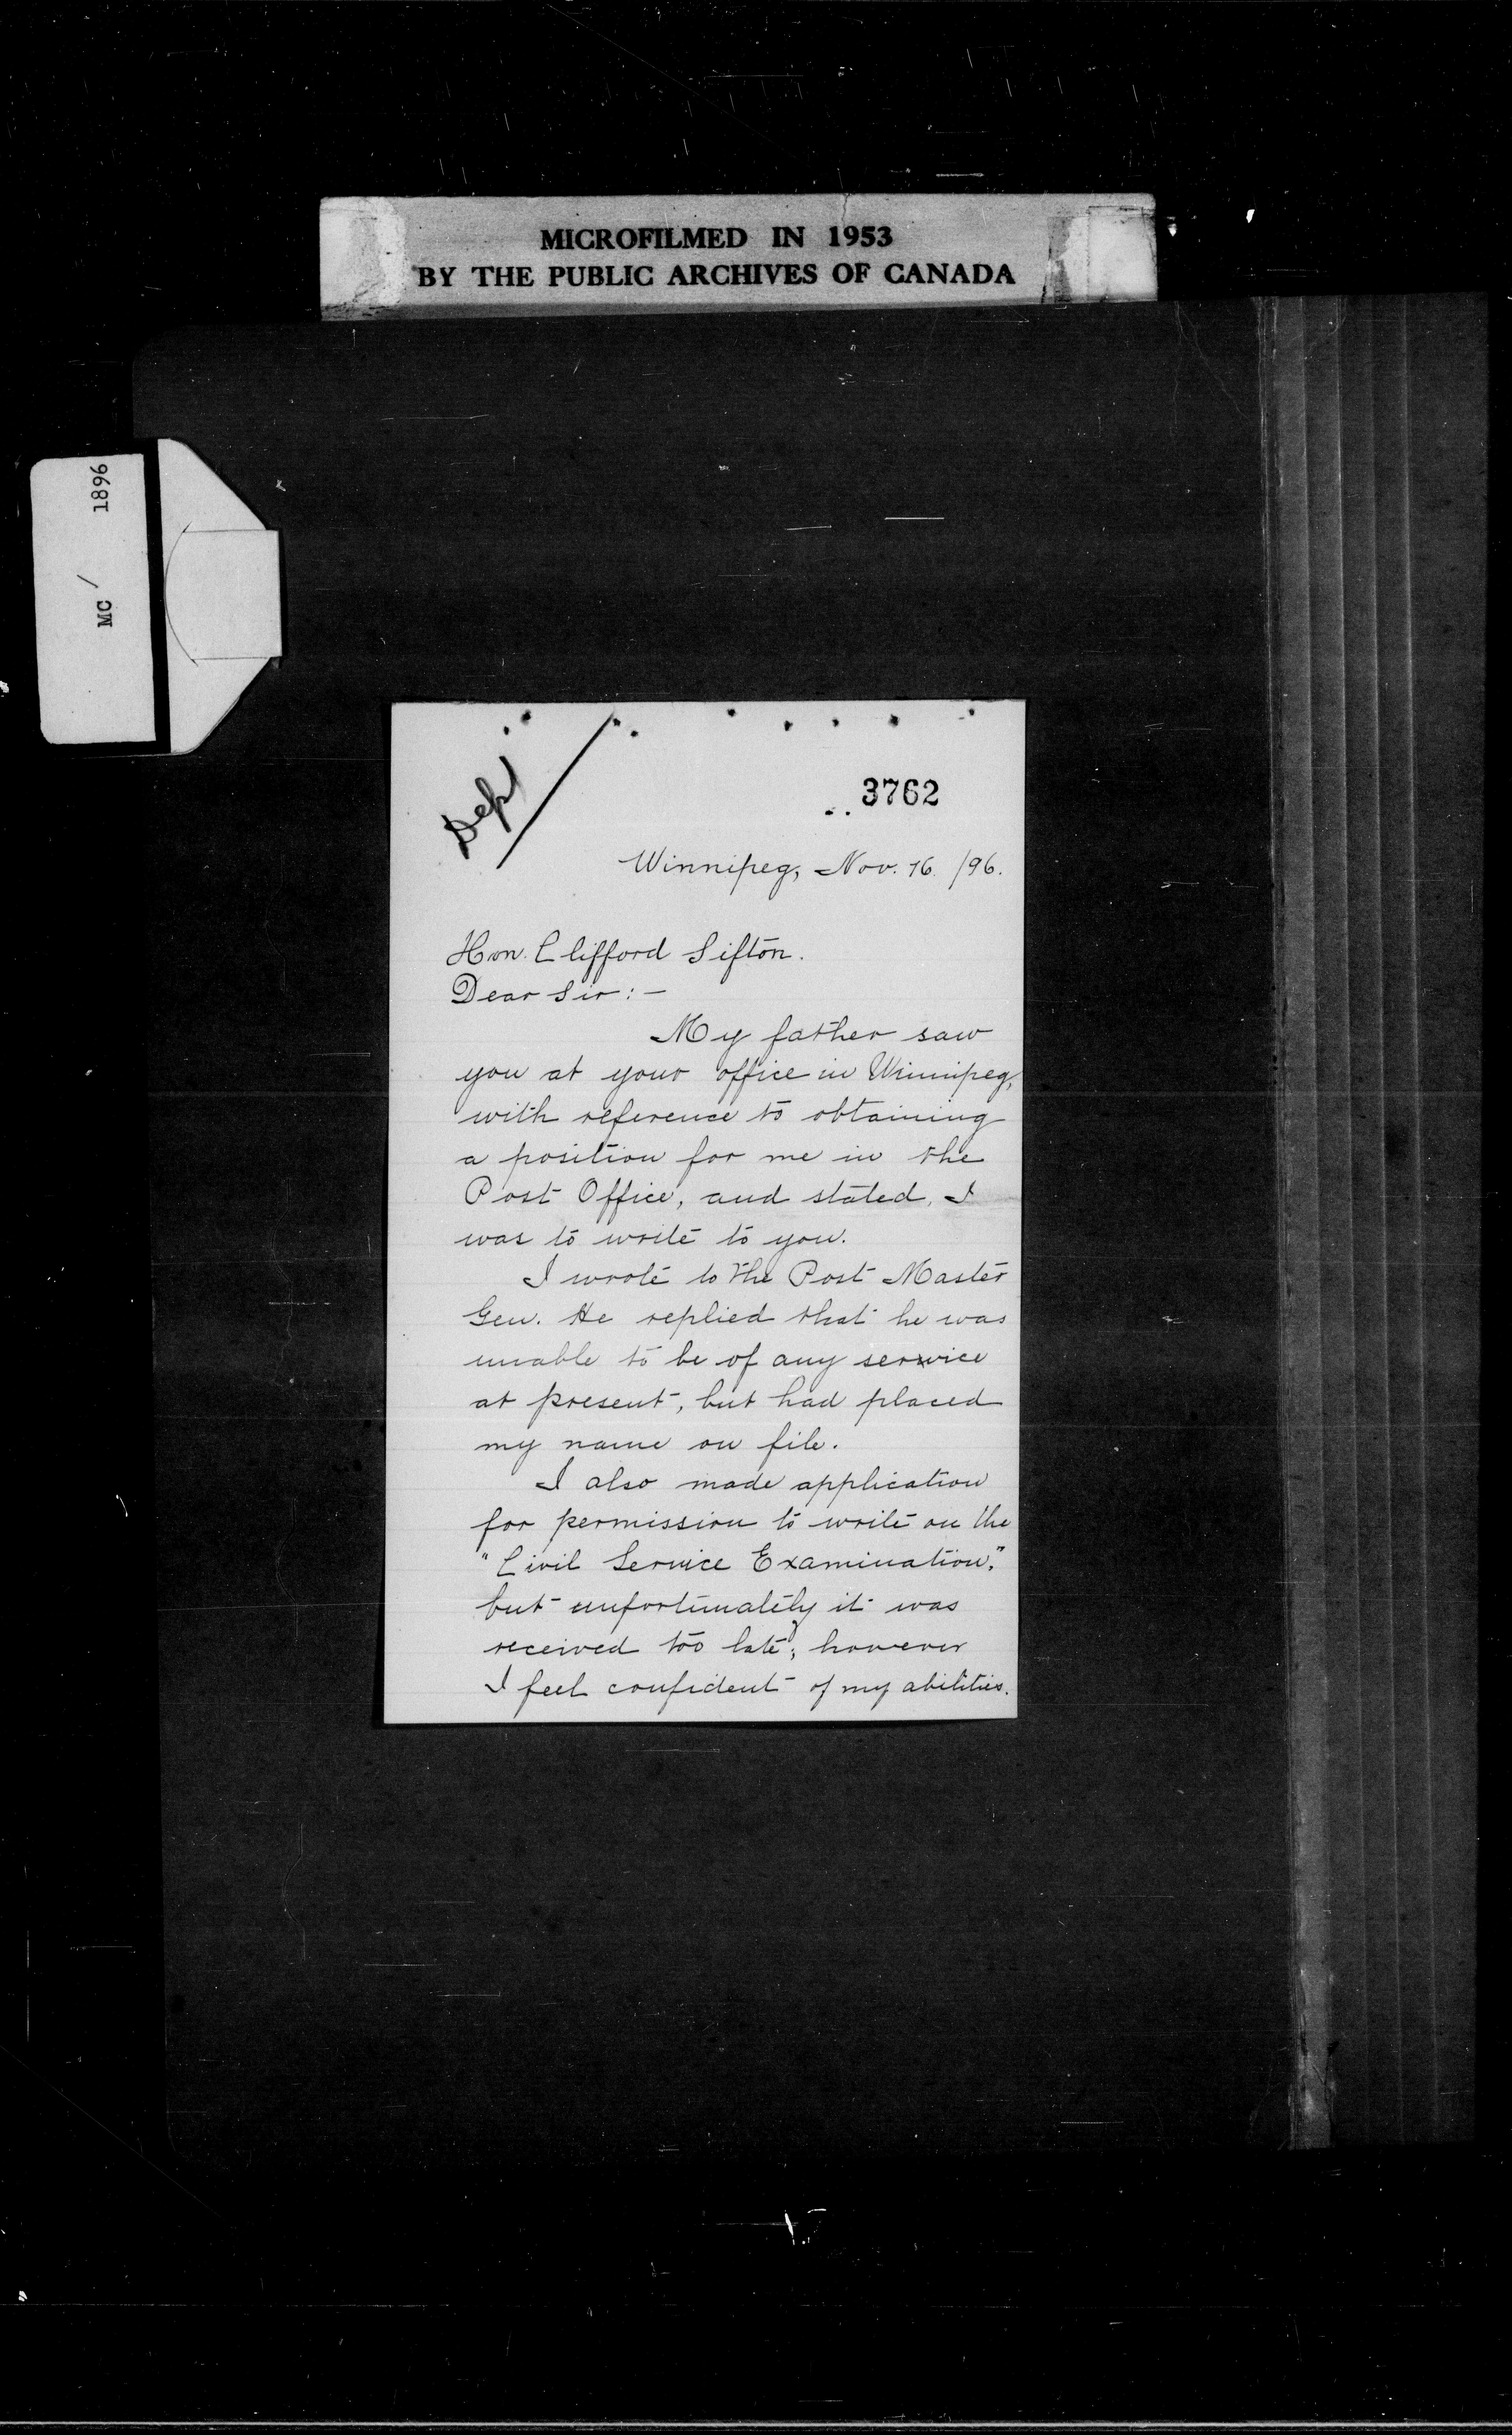 MICROFILMED IN 1953
BY THE PUBLIC ARCHIVES OF CANADA
MC / 1896
Dept
3762
Winnipeg, Nov. 16. /96.
Hon. Clifford Sifton.
Dear Sir:-
My father saw
you at your office in Winnipeg,
with reference to obtaining
a position for me in the
Post Office, and stated, I
was to write to you.
I wrote to the Post Master
Gen. He replied that he was
unable to be of any service
at present, but had placed
my name on file.
I also made application
for permission to write on the
"Civil Service Examination,"
but unfortunately it was
received too late; however
I feel confident of my abilities.